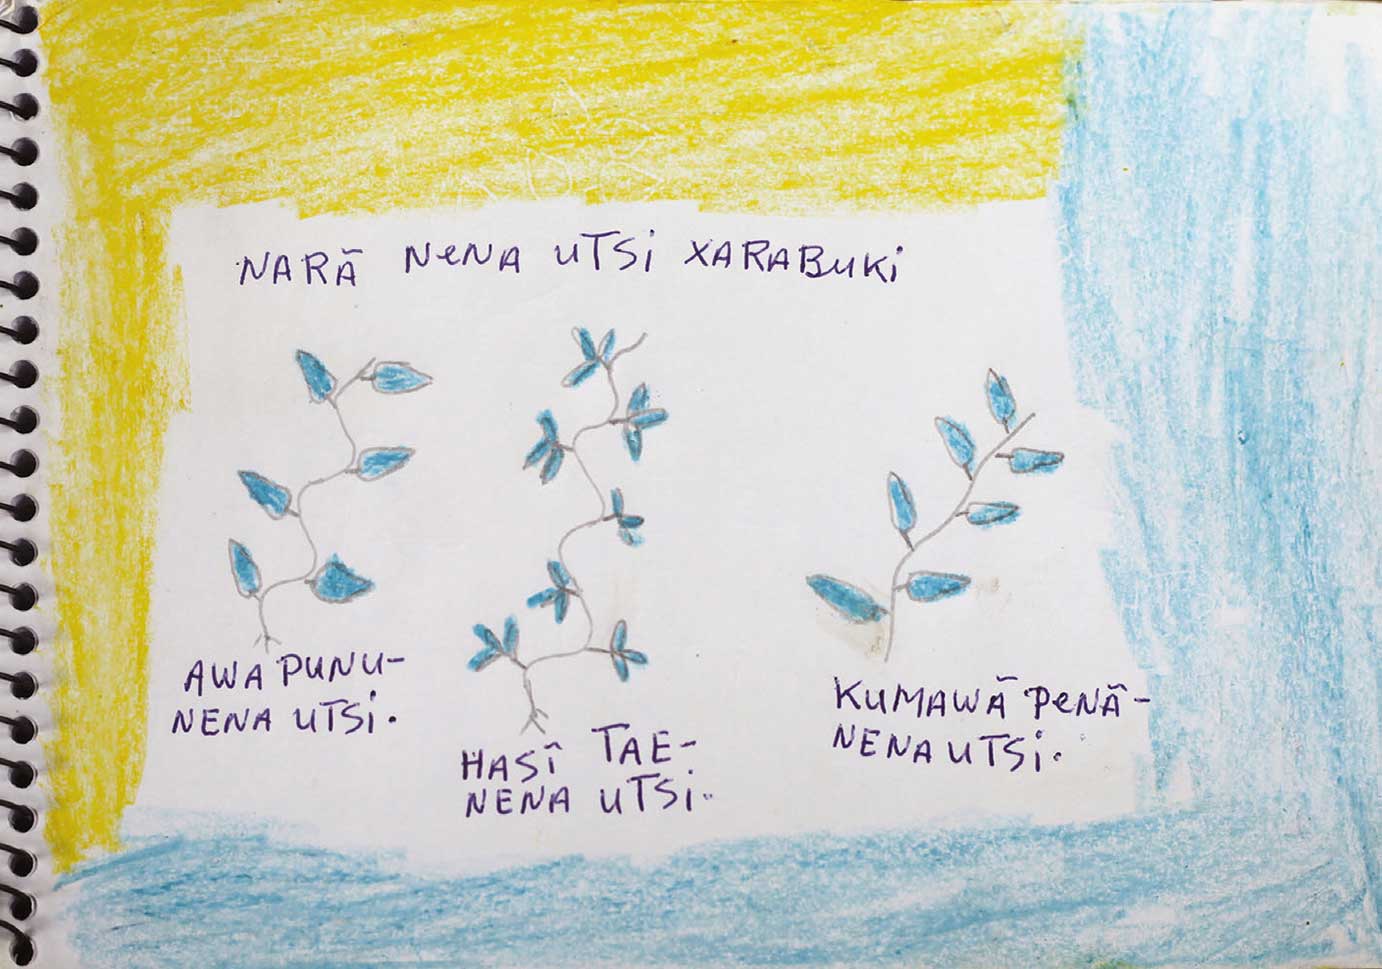 NARÃ NENA UTSI XARABUKI
AWA PUNU-
NENA UTSI.
HASĨ TAE-
NENA UTSI..
KUMAWÃ PENÃ-
NENA UTSI.